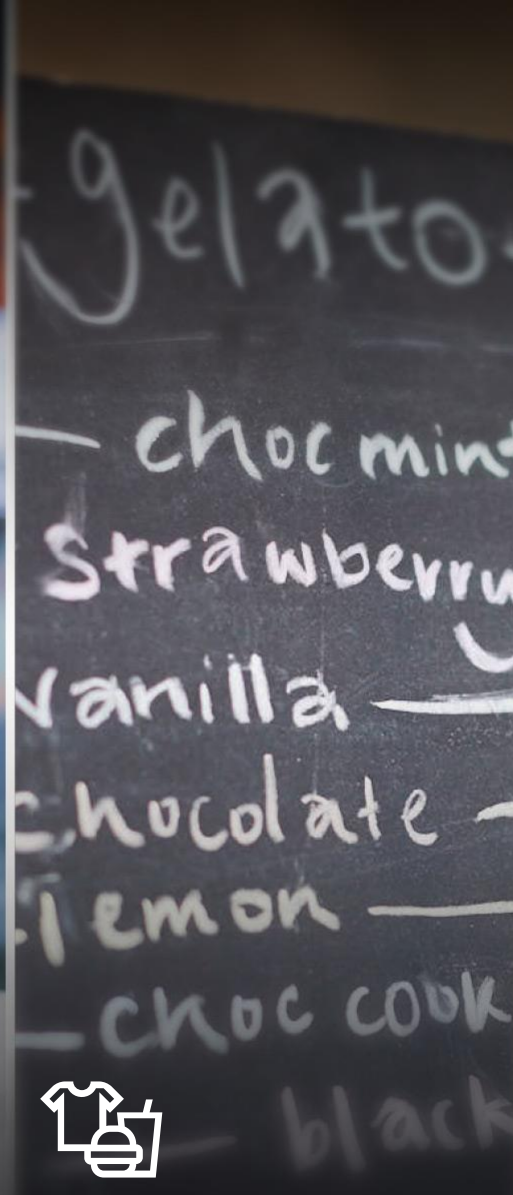 gelato
choc mint
strawberry
vanilla
chocolate
lemon
choc cook
black